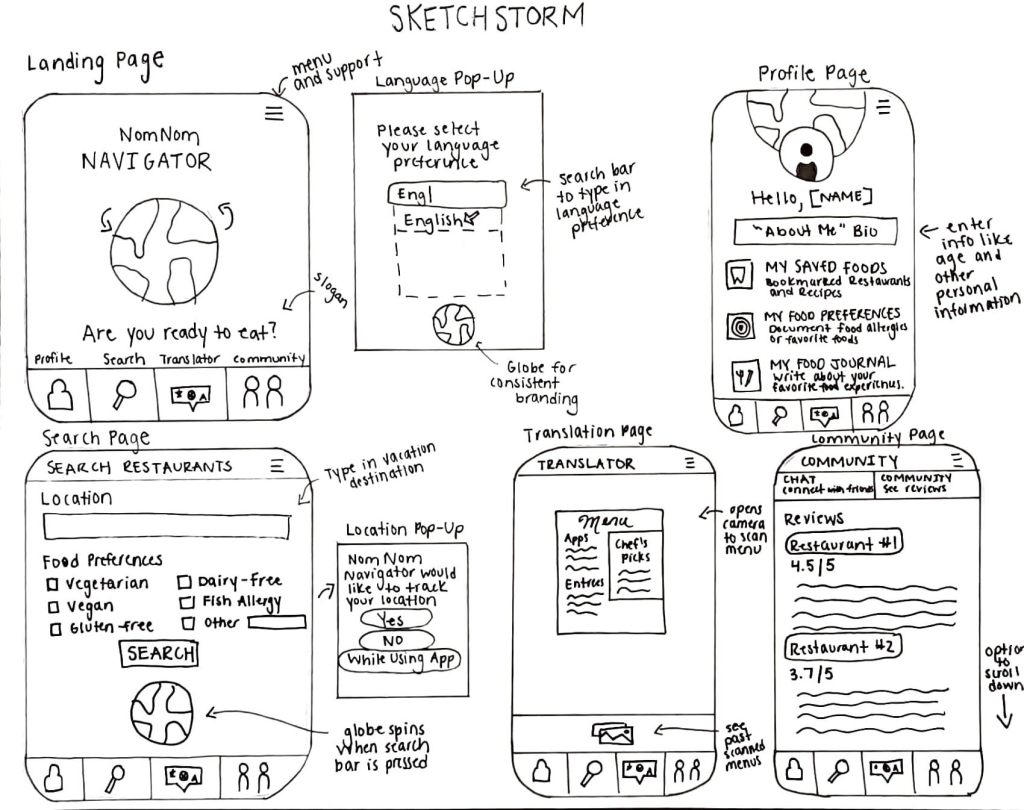 SKETCHSTORM
Landing Page
menu
and support
NomNom
NAVIGATOR
slogan
Are you ready to eat?
Profile Search Translator Community
Language Pop-Up
Please select
your language
preference
Eng
English
search bar
to type in
language
preference
Globe for
consistent
branding
Profile Page
Hello, [NAME]
"About Me" Bio
enter
info like
age and
other
personal
information
MY SAVED FOODS
Bookmarked Restaurants
and Recipes
MY FOOD PREFERENCES
Document food allergies
or favorite foods
MY FOOD JOURNAL
Write about your
favorite food experiences.
Search Page
SEARCH RESTAURANTS
Type in vacation
destination
Location
Food Preferences
Vegetarian
Vegan
Gluten-free
Dairy-free
Fish Allergy
Other
SEARCH
globe spins
when search
bar is pressed
Location Pop-Up
NomNom
Navigator would
like to track
your location
Yes
NO
While Using App
Translation Page
TRANSLATOR
Menu
Apps
Entrees
Chef's
Picks
opens
camera
to scan
menu
see
past
scanned
menus
Community Page
COMMUNITY
CHAT
connect with friends
COMMUNITY
See reviews
Reviews
Restaurant #1
4.5/5
Restaurant #2
3.7/5
option
to
scroll
down